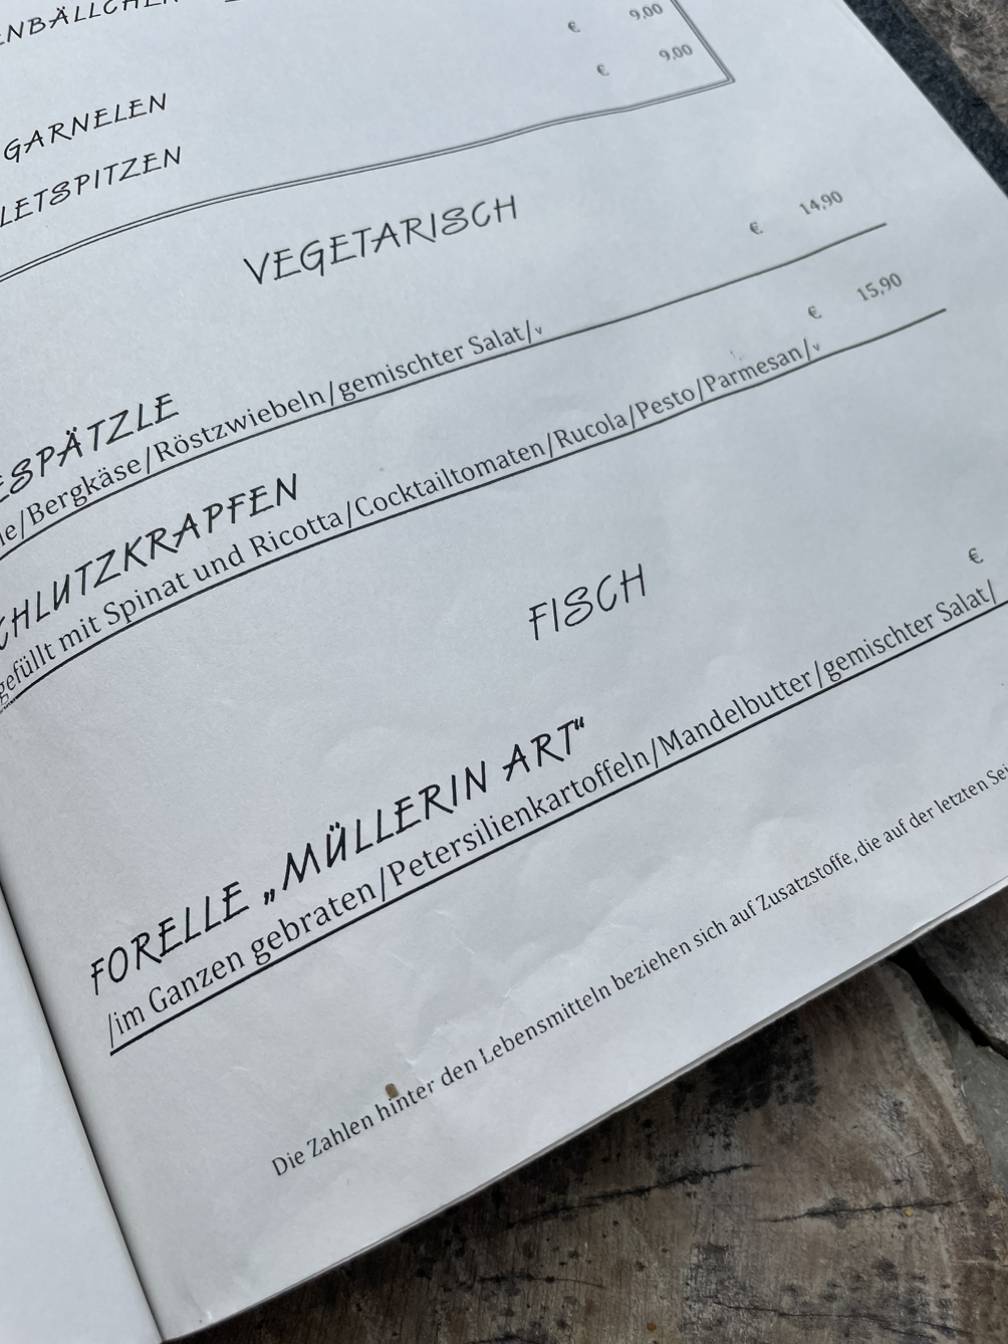 € 9,00
GARNELEN € 9,00
VEGETARISCH
€ 14,90
/Bergkäse/Röstzwiebeln/gemischter Salat/v
€ 15,90
gefüllt mit Spinat und Ricotta/Cocktailtomaten/Rucola/Pesto/Parmesan/v
FISCH
FORELLE „MÜLLERIN ART“ €
/im Ganzen gebraten/Petersilienkartoffeln/Mandelbutter/gemischter Salat/
Die Zahlen hinter den Lebensmitteln beziehen sich auf Zusatzstoffe, die auf der letzten